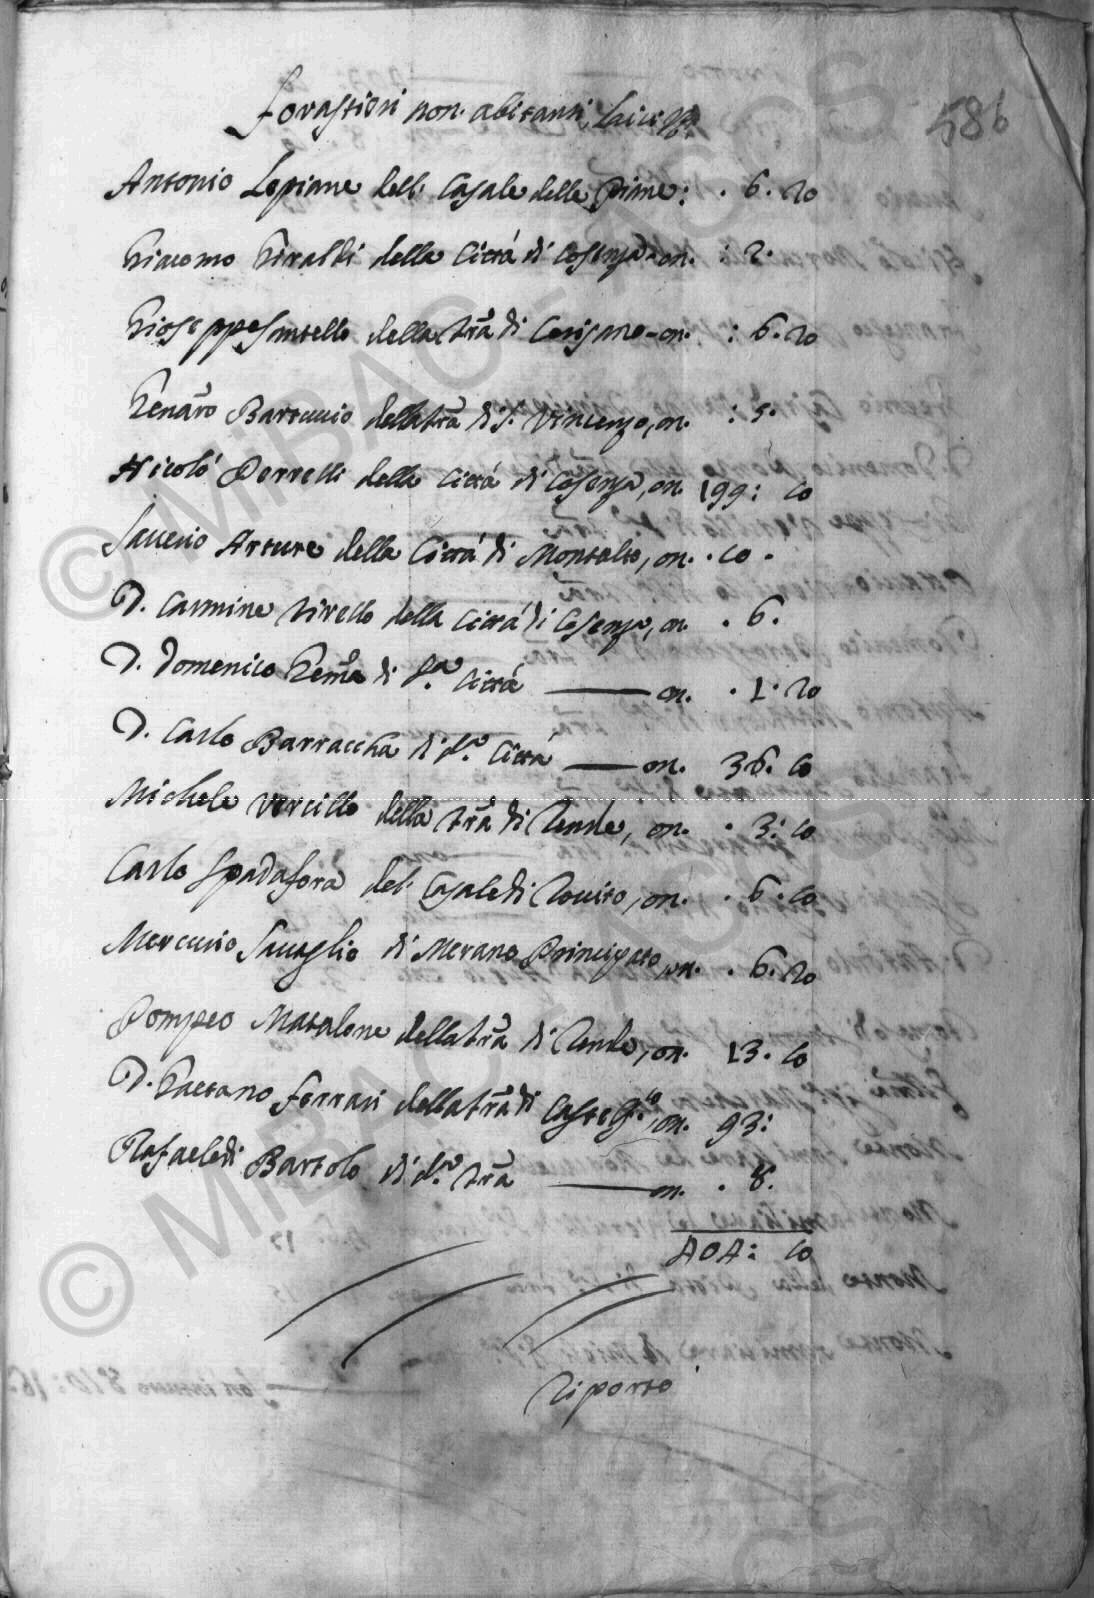 586
Forastieri non abitanti, laici
Antonio Lepiane del Casale delle Piane: . 6. 20
Giacomo Giraldi della Città di Cosenza on. : 2.
Gioseppe della Trã di Cerisano - on. : 6. 20
Genãro Bartuccio della Trã di S. Vincenzo, on. : 5.
Nicolò Perrelli della Città di Cosenza, on. 199: 10
Saverio Arture della Città di Montalto, on. . 10 .
D. Carmine Tirello della Città di Cosenza, on. . 6.
D. Domenico di d.ª Città on. . 1. 20
D. Carlo Barraccha di d.ª Città on. 36. 10
Michele Vercillo della Trã di Rende, on. . 3: 10
Carlo Spadafora del Casale di Rovito, on. . 6. 10
Mercurio Savaglio di Merano Principato, on. . 6. 20
Pompeo Matalone della Trã di Rende, on. 13. 10
D. Gaetano Ferrari della Trã di on. 93:
Rafaele di Bartolo di d.ª Trã on. . 8.
404: 10
Riporto
© MiBAC - ASCS
© MiBAC - ASCS